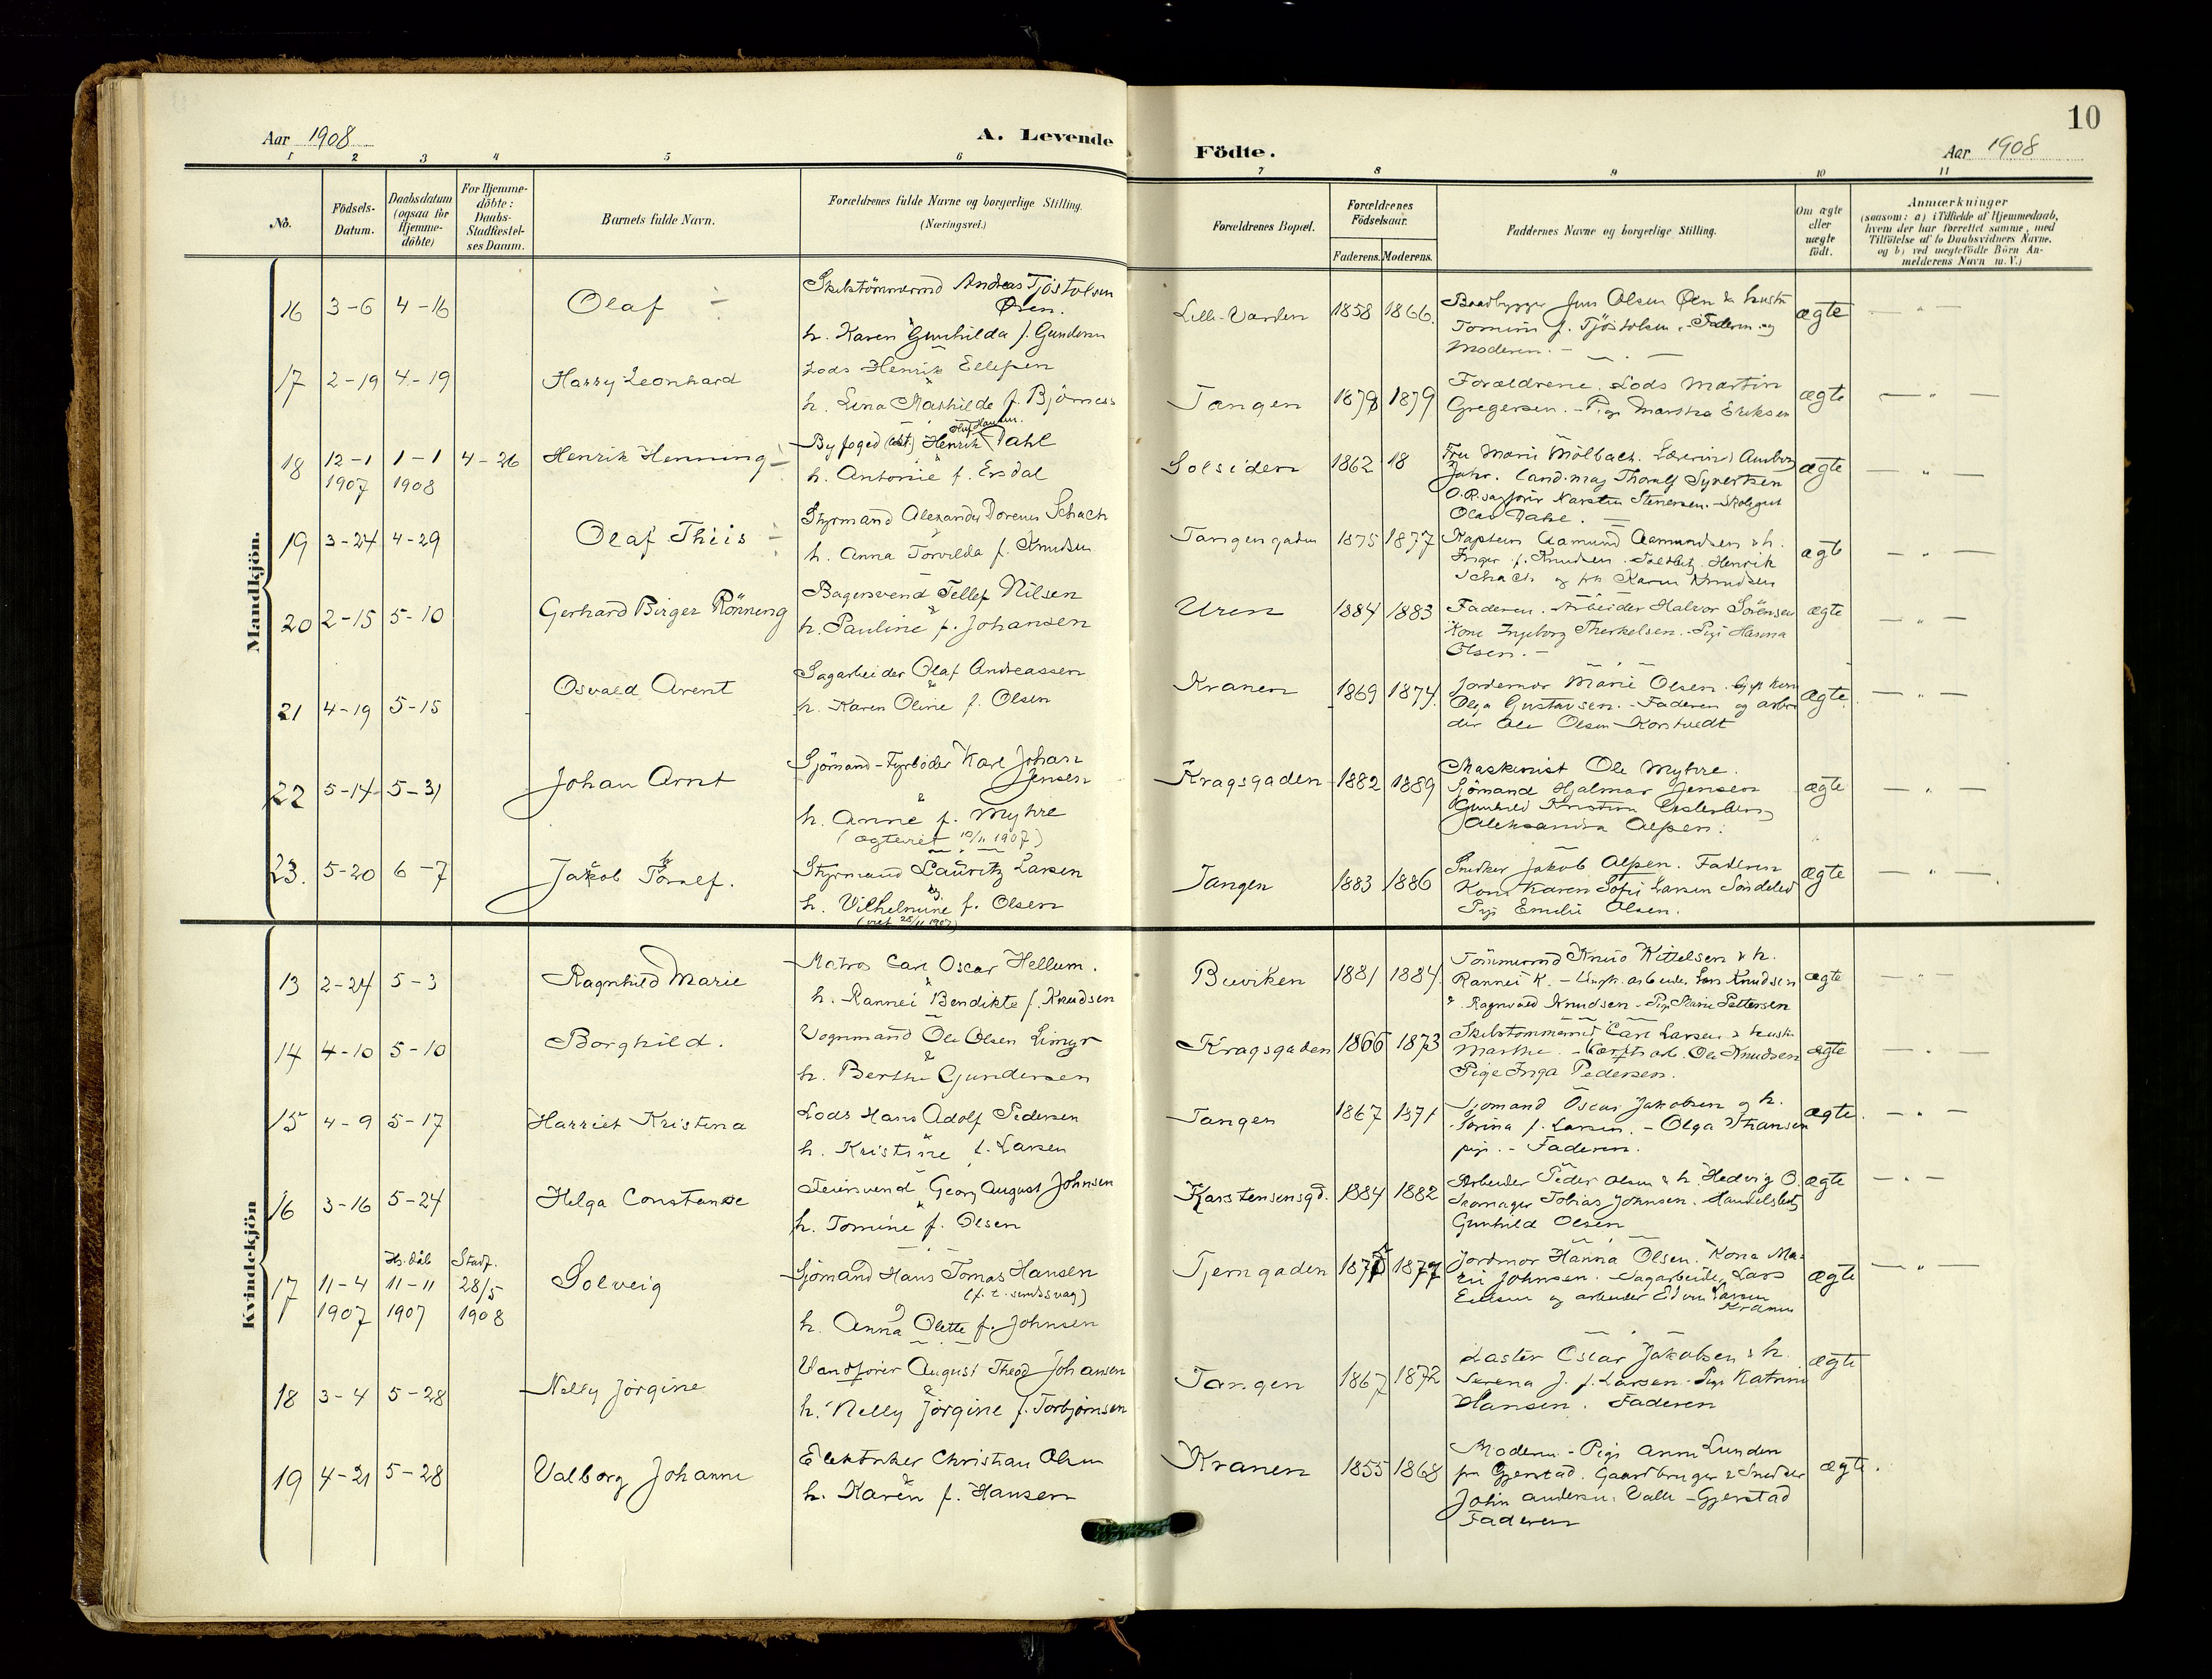 10
Aar 1908
A. Levende
Födte.
Aar 1908
1 2 3 4 5 6 7 8 9 10 11
No.
Födsels-
Datum.
Daabsdatum
(ogsaa for
Hjemme-
döbte)
For Hjemme-
döbte:
Daabs-
Stadfestel-
ses Datum.
Barnets fulde Navn.
Forældrenes fulde Navne og borgerlige Stilling.
(Næringsvei.)
Forældrenes Bopæl.
Forældrenes
Födselsaar.
Faderens. Moderens.
Faddernes Navne og borgerlige Stilling.
Om ægte
eller
uægte
födt.
Anmærkninger
(saasom: a) i Tilfælde af Hjemmedaab,
hvem der har forrettet samme, med
Tilföielse af to Daabsvidners Navne.
og b) ved uægtefödte Börn An-
melderens Navn m. V.)
Mandkjön.
16 3-6 4-16 Olaf
Andreas Tjöstolsen
h. Karen Gunhilda f.
Lille-Varden 1858 1866
Baadbygger Jens Olsen Öen &
f. Tjöstolsen. Faderen og
Moderen.
ægte
17 2-19 4-19 Harry Leonhard
Lods Henrik Ellefsen
h. Lina Mathilde f.
Tangen 1879
Forældrene. Lods Martin
Gregersen. - Pige Martha Eriksen
ægte
18 12-1 1-1 4-26 Henrik Henning
1907 1908
Byfoged Henrik Dahl
h. Antonie f. Ersdal
Solsiden 1862 18
Fru Marie Mölbach.
Cand. mag Thoralf Syvertsen
O.R.sagförer Karsten Stenersen. - Skolegut
Olav Dahl.
ægte
19 3-24 4-29 Olaf Thiis
Styrmand Alexander Schach
h. Anna Torvilda f. Knudsen
Tangengaden 1875 1877
Kaptein Aamund Aamundsen & h.
Inger f. Knudsen. Henrik
Schach og Karen Knudsen
ægte
20 2-15 5-10 Gerhard Birger Rönning
Bagersvend Tellef Nilsen
&
h. Pauline f. Johansen
Uren 1884 1883
Faderen. Arbeider Halvor Sörensen
Kone Ingeborg Therkelsen. - Pige
Olsen. -
ægte
21 4-19 5-15 Osvald Arent
Sagarbeider Olaf Andreassen
&
h. Karen Oline f. Olsen
Kranen 1869 1874
Jordemor Marie Olsen.
Olga Gustavsen. - Faderen og arbei
der Ole Olsen
ægte
22 5-14 5-31 Johan Arnt
Sjömand-Fyrböder Karl Johan
Jensen
&
h. Anne f. Myhre
(ægteviet 10/11 1907)
Kragsgaden 1882 1889
Maskinist Ole Myhre.
Sjömand Hjalmar Jensen
Gunhild
Aleksandra Alfsen.
ægte
23. 5-20 6-7 Jakob Thoralf.
Styrmand Lauritz Larsen
h. Vilhelmine f. Olsen
(viet 25/11 1907)
Tangen 1883 1886
Snedker Jakob Alfsen. Faderen
Kone Karen Sofie Larsen Söndeled
Pige Emilie Olsen.
ægte
Kvindekjön
13 2-24 5-3 Ragnhild Marie
Matros Carl Oscar Hellum.
&
h. Rannei Bendikte f. Knudsen
Buviken 1881 1884
Tömmermd Knud Kittelsen & h.
Rannei K. - Lars Knudsen
& Ragnvald Knudsen - Pige Marie Pettersen
ægte
14 4-10 5-10 Borghild.
Vognmand Ole Olsen Limyr
&
h. Berthe Gundersen
Kragsgaden 1866 1873
Carl Larsen &
Marthe. - Ole Knudsen
Pige Inga Pedersen.
ægte
15 4-9 5-17 Harriet Kristina
Lods Hans Adolf Pedersen
&
h. Kristine f. Larsen
Tangen 1867 1871
Sjömand Oscar Jakobsen og h.
f. Larsen. - Olga Johansen
pige. - Faderen.
ægte.
16 3-16 5-24 Helga Constanse
Feiersvend Georg August Johnsen
&
h. Tomine f. Olsen
Karstensensgd. 1884 1882
Arbeider Peder Olsen & h. Hedvig O.
Skomager Tobias Johnsen.
Gunhild Olsen
ægte
Hj.dåb Stadf.
17 11-4 11-11 28/5 Solveig
1907 1907 1908
Sjömand Hans Tomas Hansen
h. Anna Olette f. Johnsen
Tjerngaden 1877
Jordmor Hanna Olsen. Kona Ma-
Johnsen. Sagarbeider Lars
og arbeider Edvin Larsen
Kranen
ægte
18 3-4 5-28 Nelly Jörgine
Vandförer August Theod Johansen
&
h. Nelly Jörgine f. Torbjörnsen
Tangen 1867 1872
Oscar Jakobsen & h.
Serena J. f. Larsen - Pige Katrine
Hansen. Faderen
ægte
19 4-21 5-28 Valborg Johanne
Elektriker Christian Olsen
&
h. Karen f. Hansen
Kranen 1855 1868
Moderen - Pige Anne Lunden
fra Gjerstad. Gaardbruger & Snedker
John Andersen. Valle - Gjerstad
Faderen
ægte.